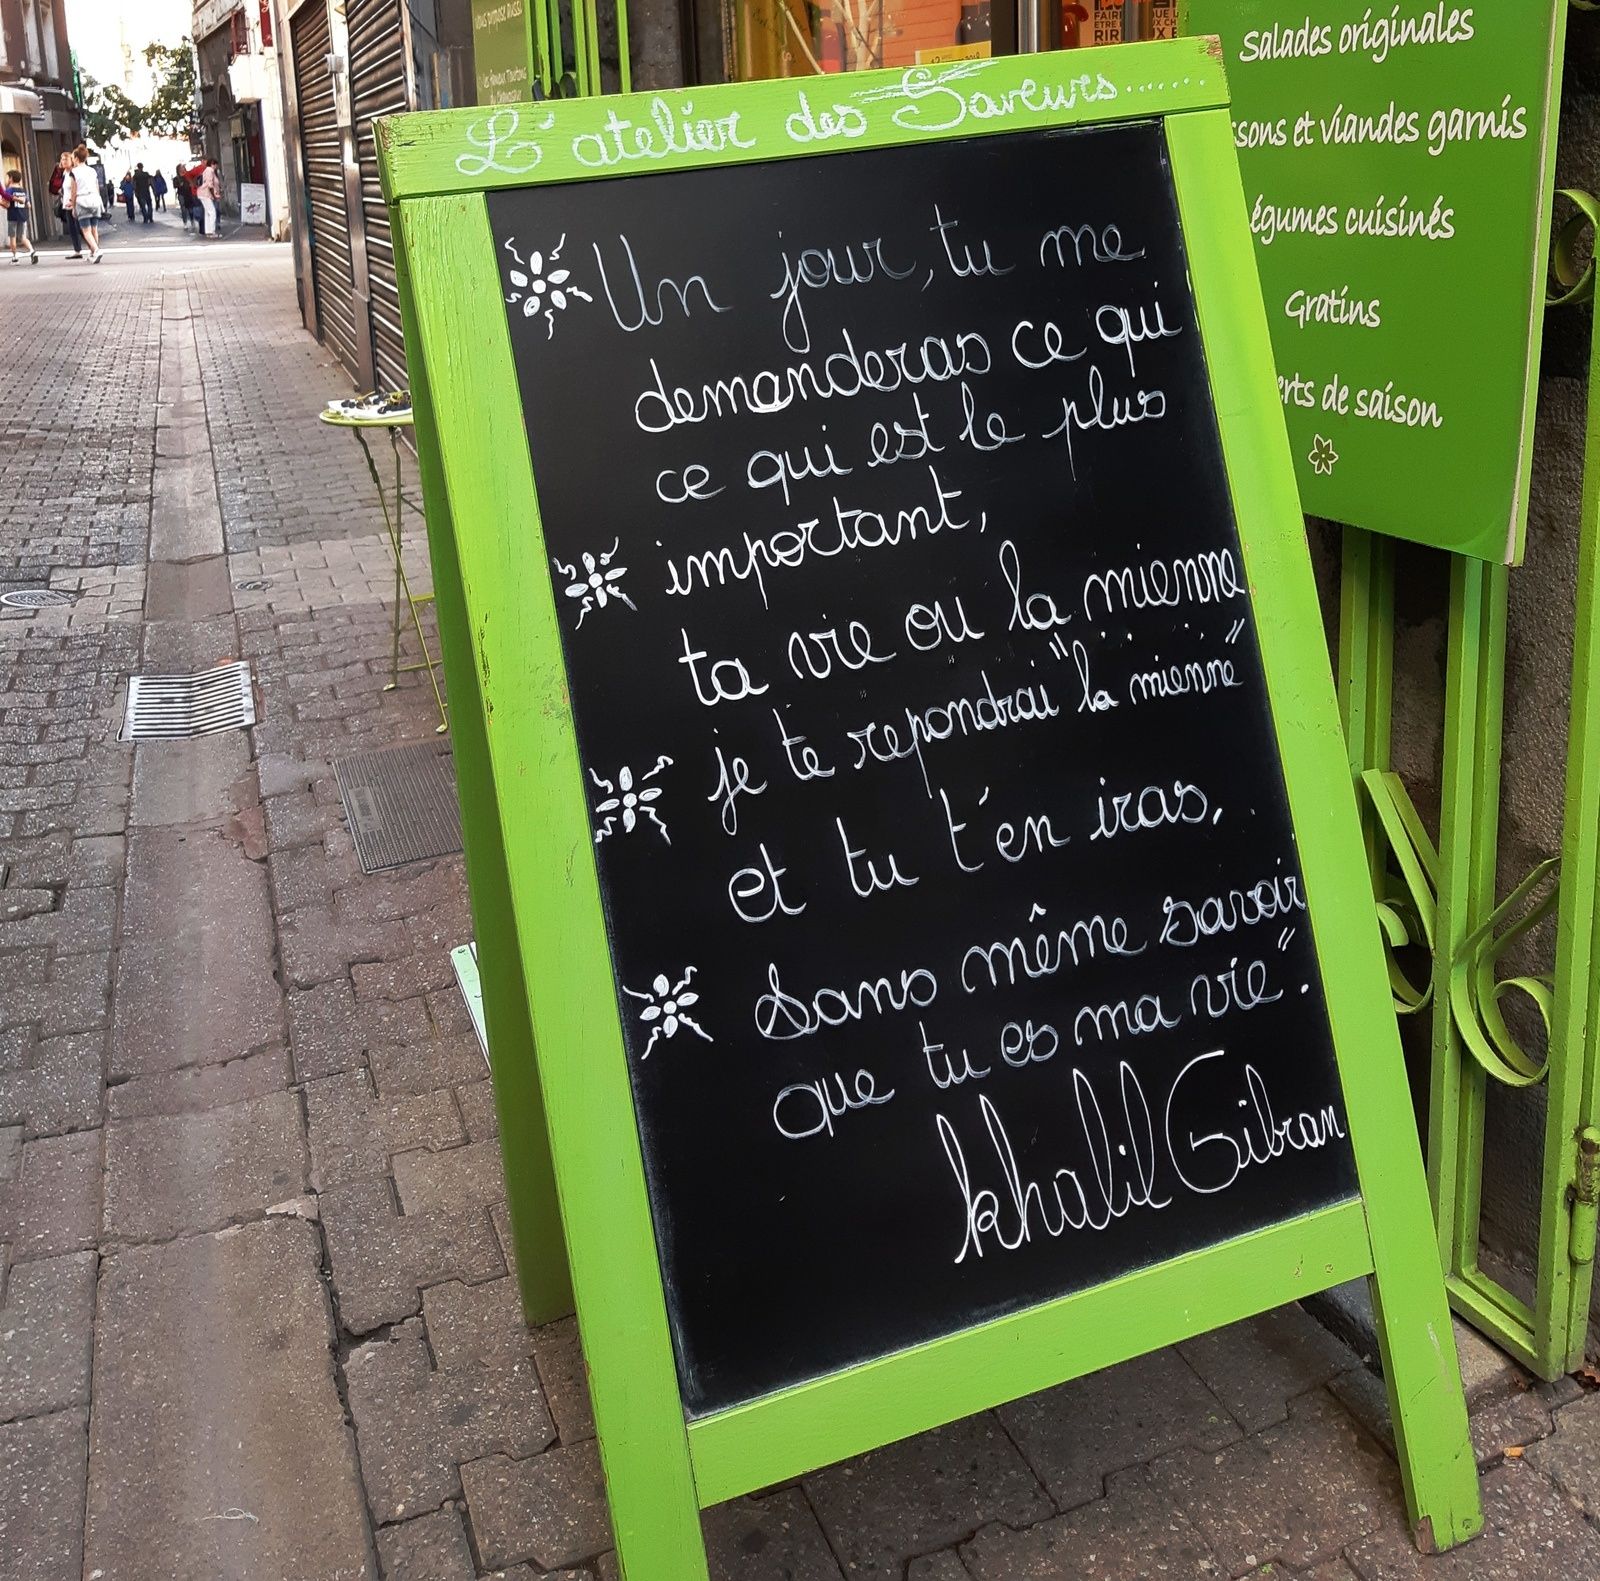 L'atelier des Saveurs.......
Un jour, tu me
demanderas ce qui
ce qui est le plus
important,
ta vie ou la mienne
je te repondrai "la mienne"
et tu t'en iras,
Sans même savoir
que tu es ma vie".
Khalil Gibran
Salades originales
ssons et viandes garnis
égumes cuisinés
Gratins
erts de saison